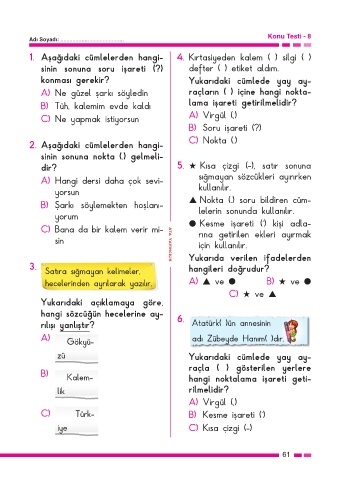 Adı Soyadı: ................................
Konu Testi - 8
1. Aşağıdaki cümlelerden hangi-
sinin sonuna soru işareti (?)
konması gerekir?
A) Ne güzel şarkı söyledin
B) Tüh, kalemim evde kaldı
C) Ne yapmak istiyorsun
2. Aşağıdaki cümlelerden hangi-
sinin sonuna nokta (.) gelmeli-
dir?
A) Hangi dersi daha çok sevi-
yorsun
B) Şarkı söylemekten hoşlanı-
yorum
C) Bana da bir kalem verir mi-
sin
3. Satıra sığmayan kelimeler,
hecelerinden ayrılarak yazılır.
Yukarıdaki açıklamaya göre,
hangi sözcüğün hecelerine ay-
rılışı yanlıştır?
A) Gökyü-
zü
B) Kalem-
lik
C) Türk-
iye
ATA YAYINCILIK
4. Kırtasiyeden kalem ( ) silgi ( )
defter ( ) etiket aldım.
Yukarıdaki cümlede yay ay-
raçların ( ) içine hangi nokta-
lama işareti getirilmelidir?
A) Virgül (,)
B) Soru işareti (?)
C) Nokta (.)
5. ★ Kısa çizgi (-), satır sonuna
sığmayan sözcükleri ayırırken
kullanılır.
▲ Nokta (.) soru bildiren cüm-
lelerin sonunda kullanılır.
● Kesme işareti (') kişi adla-
rına getirilen ekleri ayırmak
için kullanılır.
Yukarıda verilen ifadelerden
hangileri doğrudur?
A) ▲ ve ● B) ★ ve ●
C) ★ ve ▲
6. Atatürk( )ün annesinin
adı Zübeyde Hanım( )dır.
Yukarıdaki cümlede yay ay-
raçla ( ) gösterilen yerlere
hangi noktalama işareti geti-
rilmelidir?
A) Virgül (,)
B) Kesme işareti (')
C) Kısa çizgi (-)
61